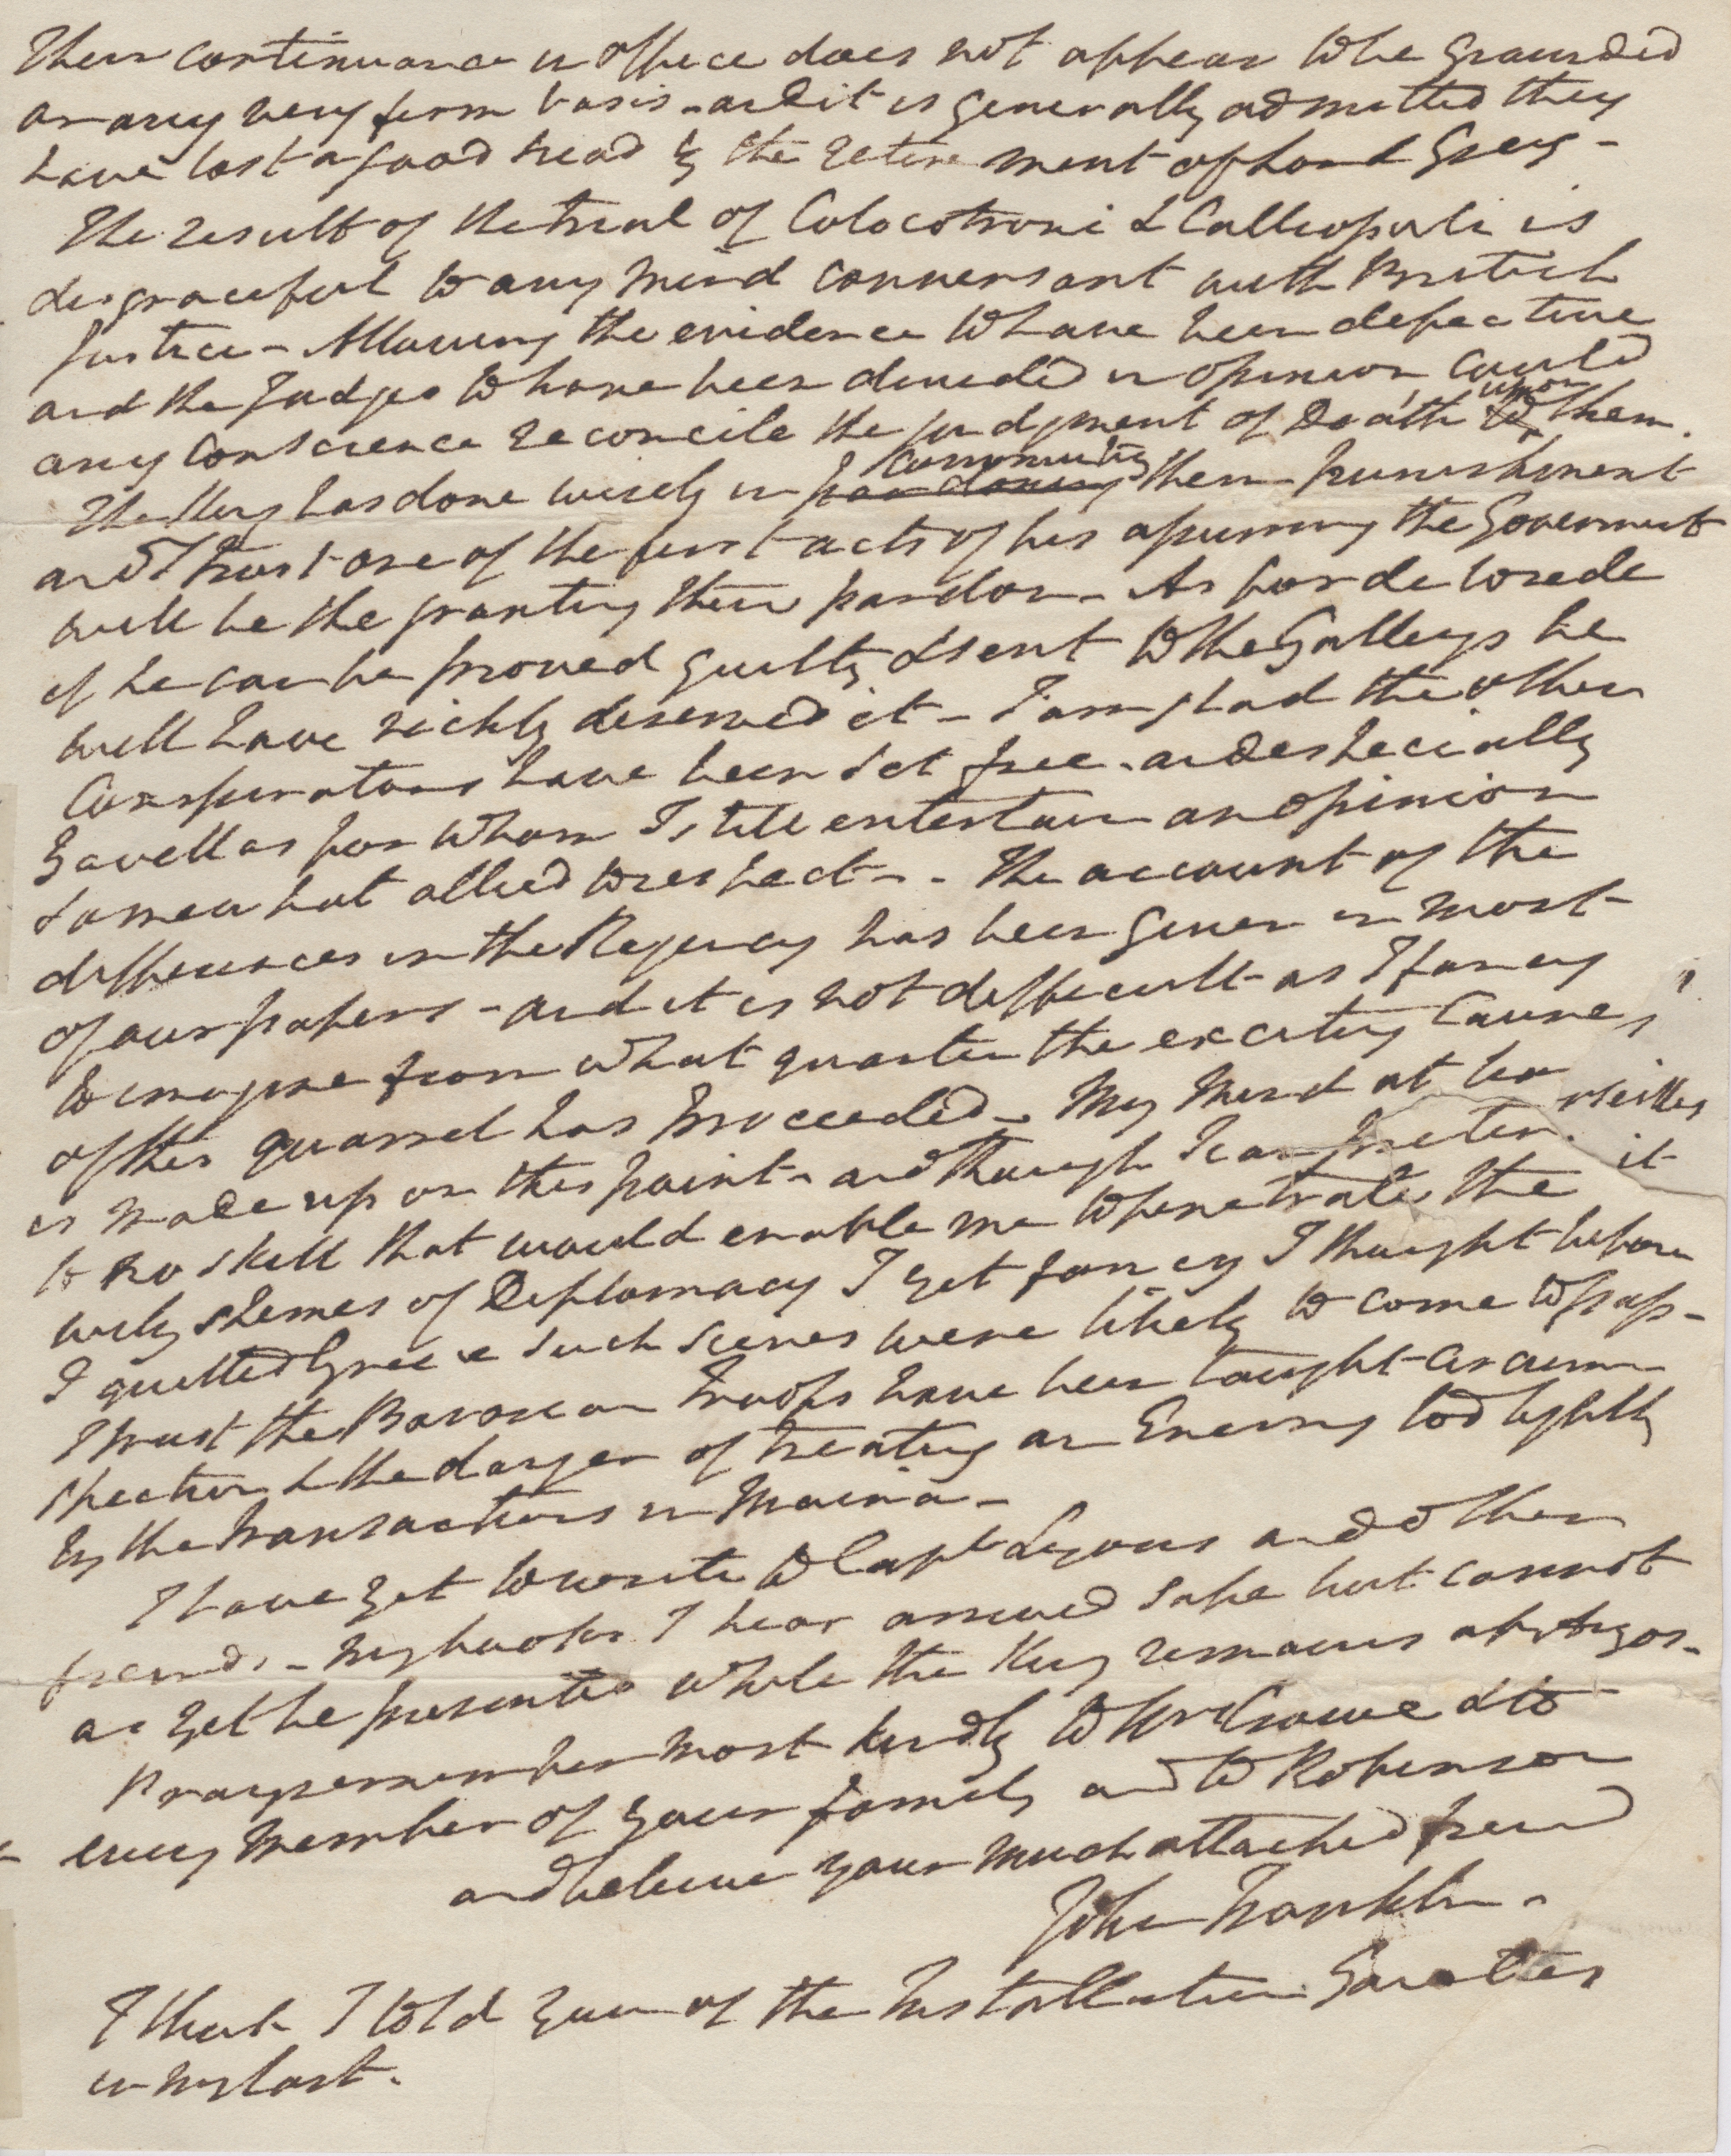 Their continuance in office does not appear to be grounded
on any very firm basis - and it is generally admitted they
have lost a good head by the retirement of Lord Grey -
The result of the trial of Colocotroni & Calliopuli is
disgraceful to any mind conversant with British
Justice - Allowing the evidence to have been defective
and the Judges to have been divided in opinion could
any conscience reconcile the judgment of Death upon them.
The King has done wisely in commuting their punishment
and I trust one of the first acts of his assuming the Government
will be the granting their pardon - As for
if he can be proved guilty & sent to the Galleys he
will have richly deserved it - I am glad the other
Conspirators have been set free - and especially
for whom I still entertain an opinion
somewhat allied to respect - - The account of the
differences in the Regency has been given in most
of our papers - and it is not difficult as I fancy
to imagine from what quarter the exciting Cause
of this quarrel has proceeded - My mind at
is made up on this point - and though I can
to no skill that would enable me to penetrate the
wily schemes of Diplomacy I yet fancy I thought before
I quitted Greece such scenes were likely to come to pass -
I trust the Bavarian Troops have been taught circum-
spection & the danger of treating an Enemy too lightly
by the transactions in Maina -
I have yet to write to Capt Lyons and other
friends - my books I hear arrived safe but cannot
as yet be presented while the King remains at Argos -
Pray remember me most kindly to Mrs Crowe & to
every member of your family and to Robinson
and believe your much attached friend
John Franklin -
I think I told you of the Installation Gaieties
in my last.